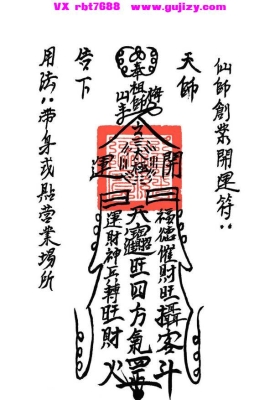 VX rbt7688 www.gujizy.com
仙師創業開運符：
天師
奉祖師
告下
開運
福德催財旺攝客斗
天旺四方氣罡
運財神兵轉旺財火
用法：帶身或貼營業場所